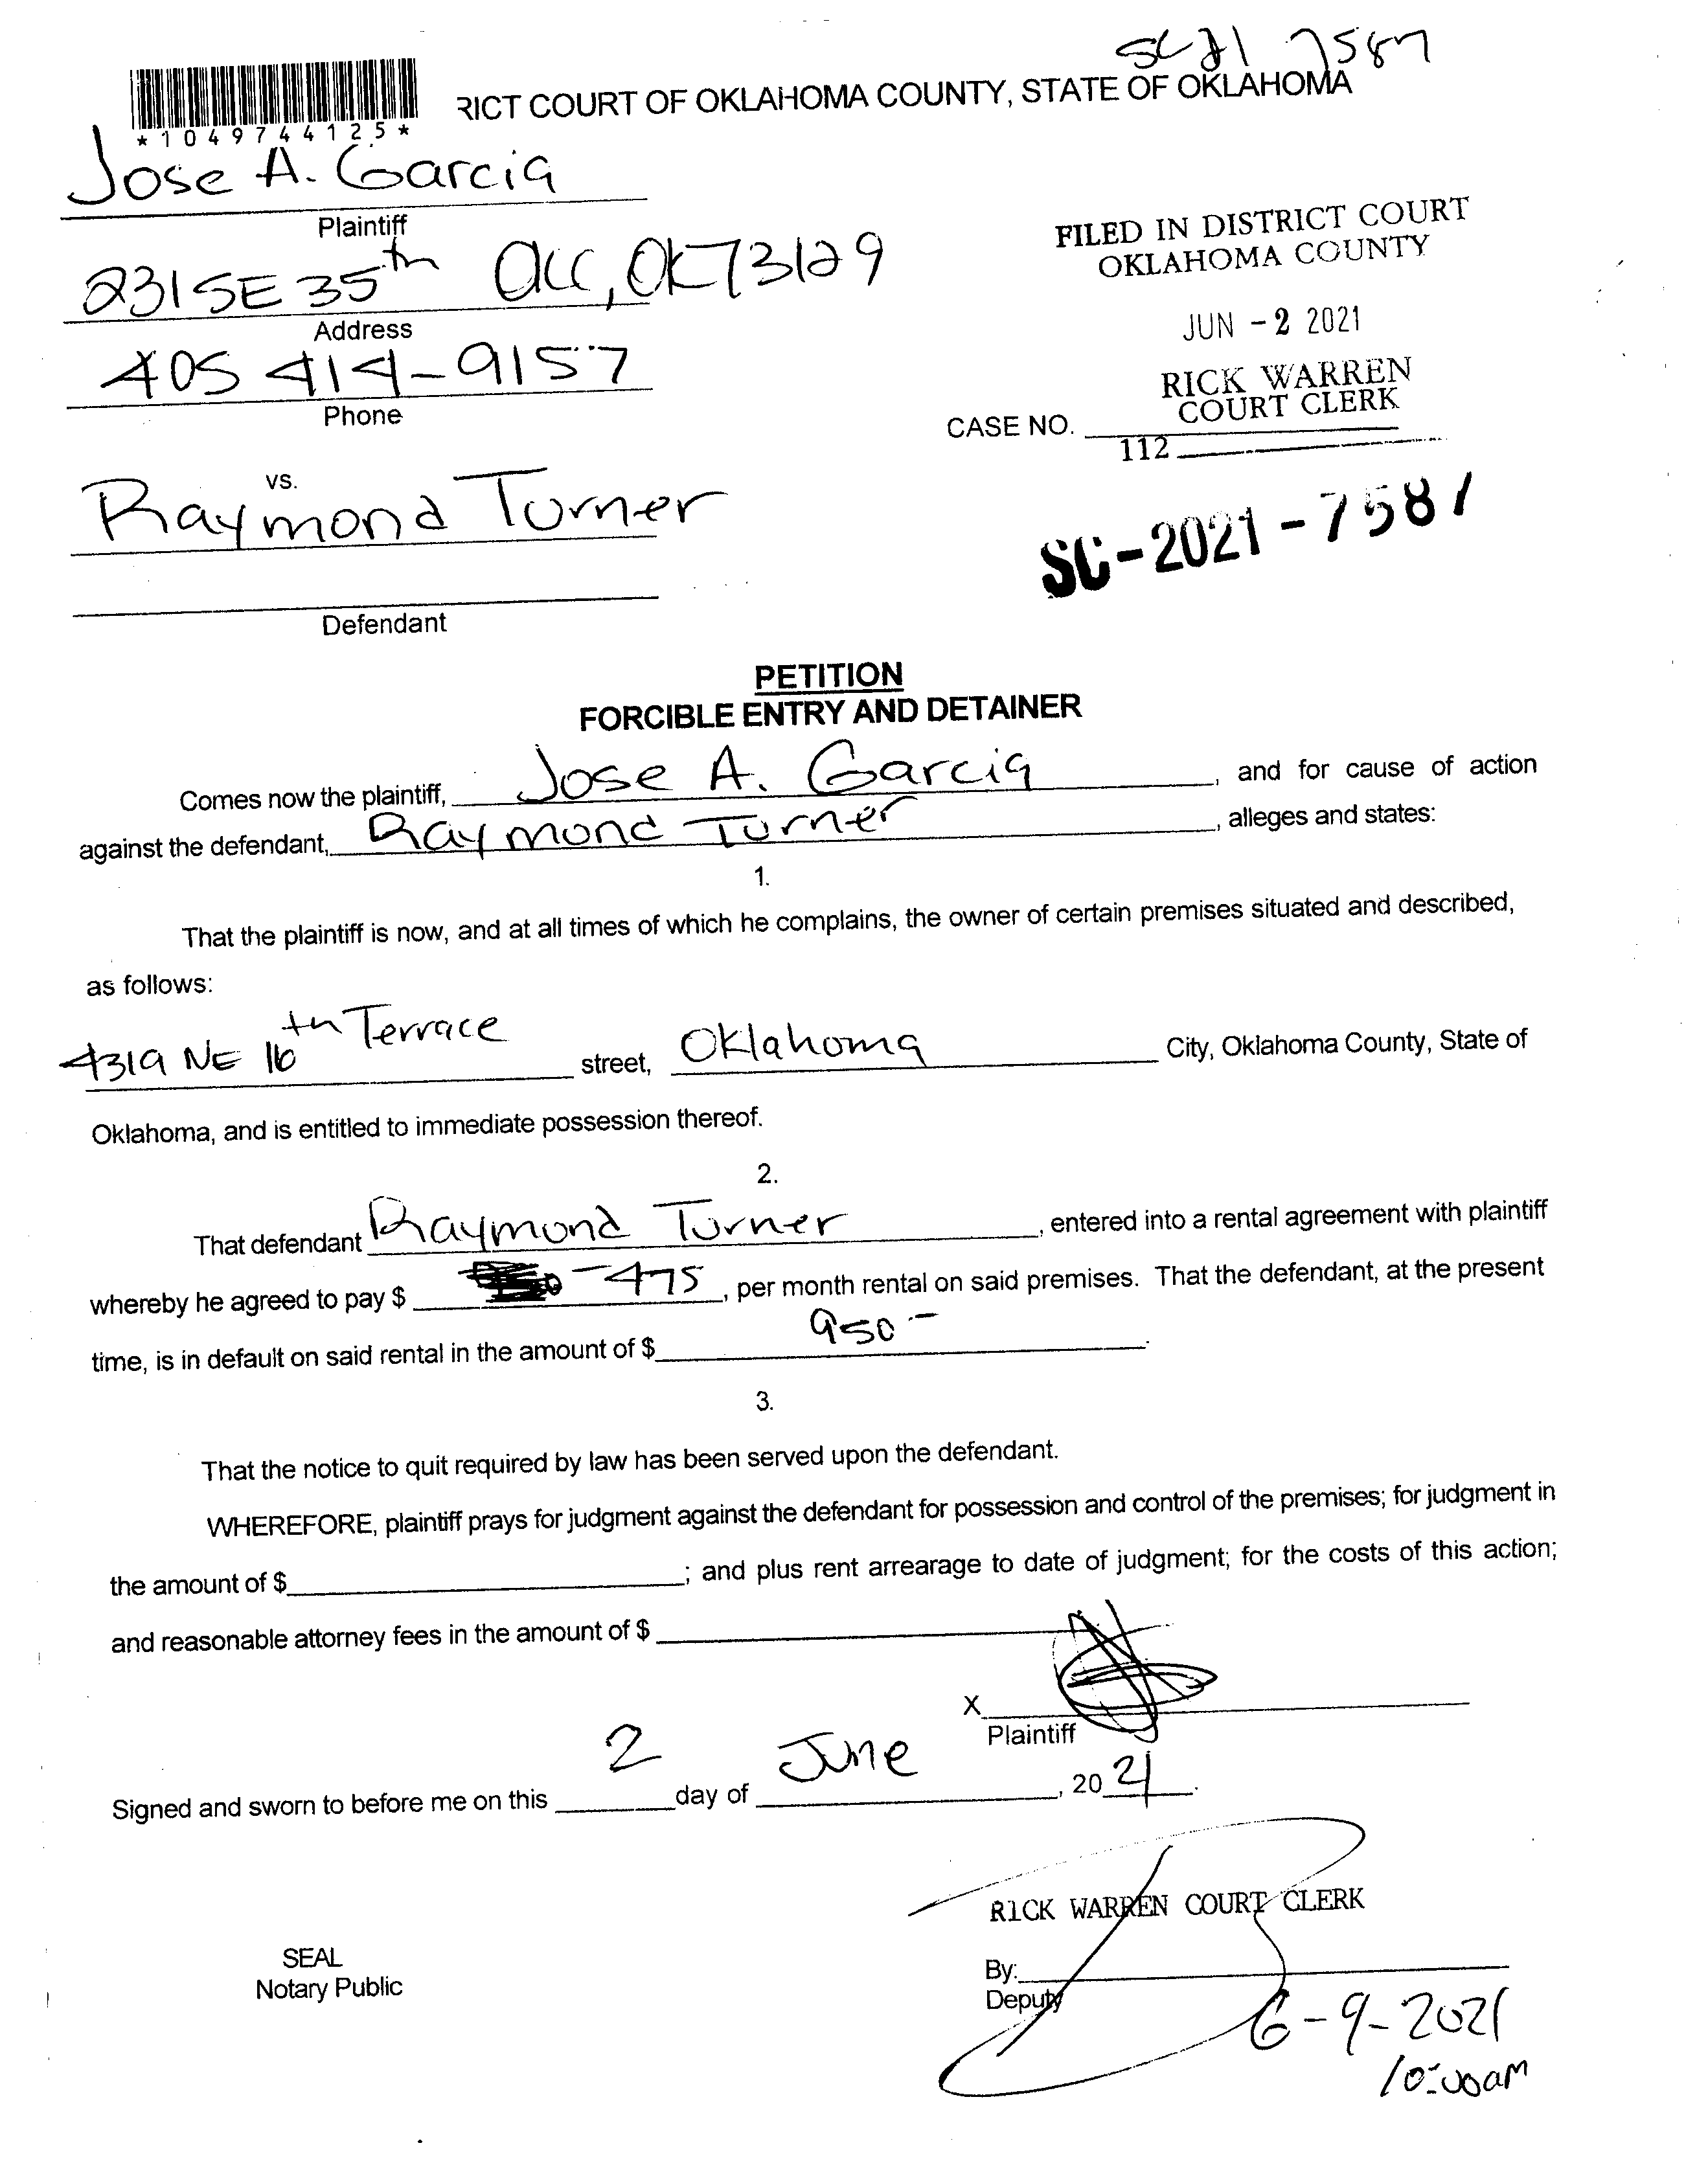 SC 21 7587
RICT COURT OF OKLAHOMA COUNTY, STATE OF OKLAHOMA
*1049744125*
Jose A. Garcia
Plaintiff
231 SE 35th OKC, OK 73129
Address
405 414-9157
Phone
FILED IN DISTRICT COURT
OKLAHOMA COUNTY
JUN -2 2021
RICK WARREN
COURT CLERK
CASE NO.
112
vs.
Raymond Turner
Defendant
SC-2021-7587
PETITION
FORCIBLE ENTRY AND DETAINER
Comes now the plaintiff, Jose A. Garcia, and for cause of action
against the defendant, Raymond Turner, alleges and states:
1.
That the plaintiff is now, and at all times of which he complains, the owner of certain premises situated and described,
as follows:
4319 NE 16th Terrace street, Oklahoma City, Oklahoma County, State of
Oklahoma, and is entitled to immediate possession thereof.
2.
That defendant Raymond Turner, entered into a rental agreement with plaintiff
whereby he agreed to pay $ -475, per month rental on said premises. That the defendant, at the present
time, is in default on said rental in the amount of $ 950-.
3.
That the notice to quit required by law has been served upon the defendant.
WHEREFORE, plaintiff prays for judgment against the defendant for possession and control of the premises; for judgment in
the amount of $; and plus rent arrearage to date of judgment; for the costs of this action;
and reasonable attorney fees in the amount of $
X
Plaintiff
Signed and sworn to before me on this 2 day of June, 2021.
RICK WARREN COURT CLERK
SEAL
Notary Public
By:
Deputy
6-9-2021
10:00am